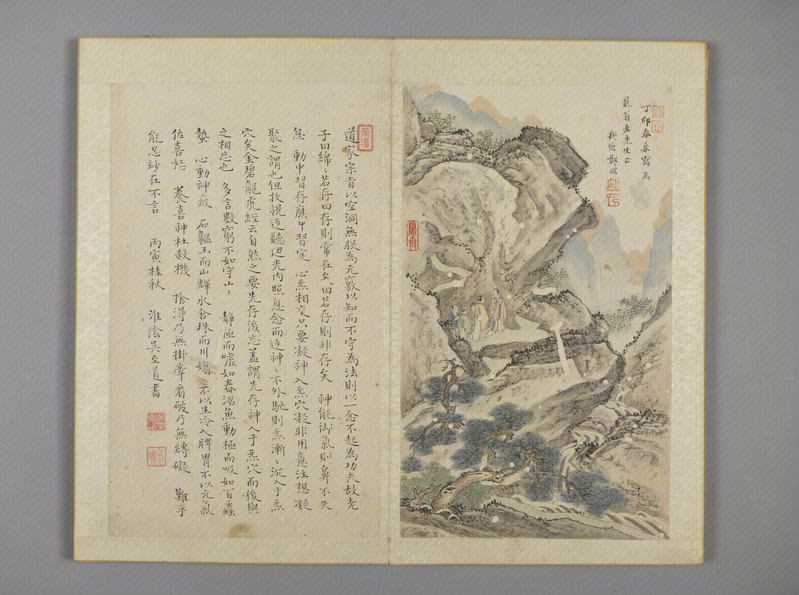 丁卯春暮寫為
龍翁老先生正
道家宗旨以空洞無朕為元竅以知而不守為法則以一念不起為功夫故老
子曰綿〻若存曰存則常在矣曰若存則非存矣 神能御氣則鼻不失
息 動中習存應中習定 心炁相交只要凝神入炁穴凝非用意注想凝
聚之謂也但收視返聽迴光內照息念而返神〻不外馳則炁漸〻沉入于炁
穴矣金碧龍虎經云自然之要先存後忘蓋謂先存神入于炁穴而後與
之相忘也 多言數窮不如守中 靜極而噓如春沼魚動極而吸如百蟲
蟄 心動神疲 石韞玉而山輝水含珠而川媚 不以生冷入脾胃不以元氣
佐喜怒 養喜神杜殺機 捨得乃無掛牽看破乃無縛礙 難乎
能忍妙在不言 丙寅桂秋 淮陰吳至道書